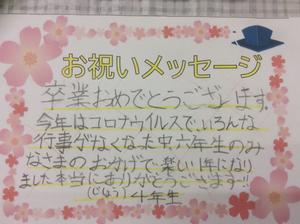 お祝いメッセージ
卒業おめでとうございます。
今年はコロナウイルスで、いろんな
行事がなくなった中六年生のみ
なさまのおかげで楽しい1年になり
ました本当にありがとうございます!!
(じゅう) 4年生